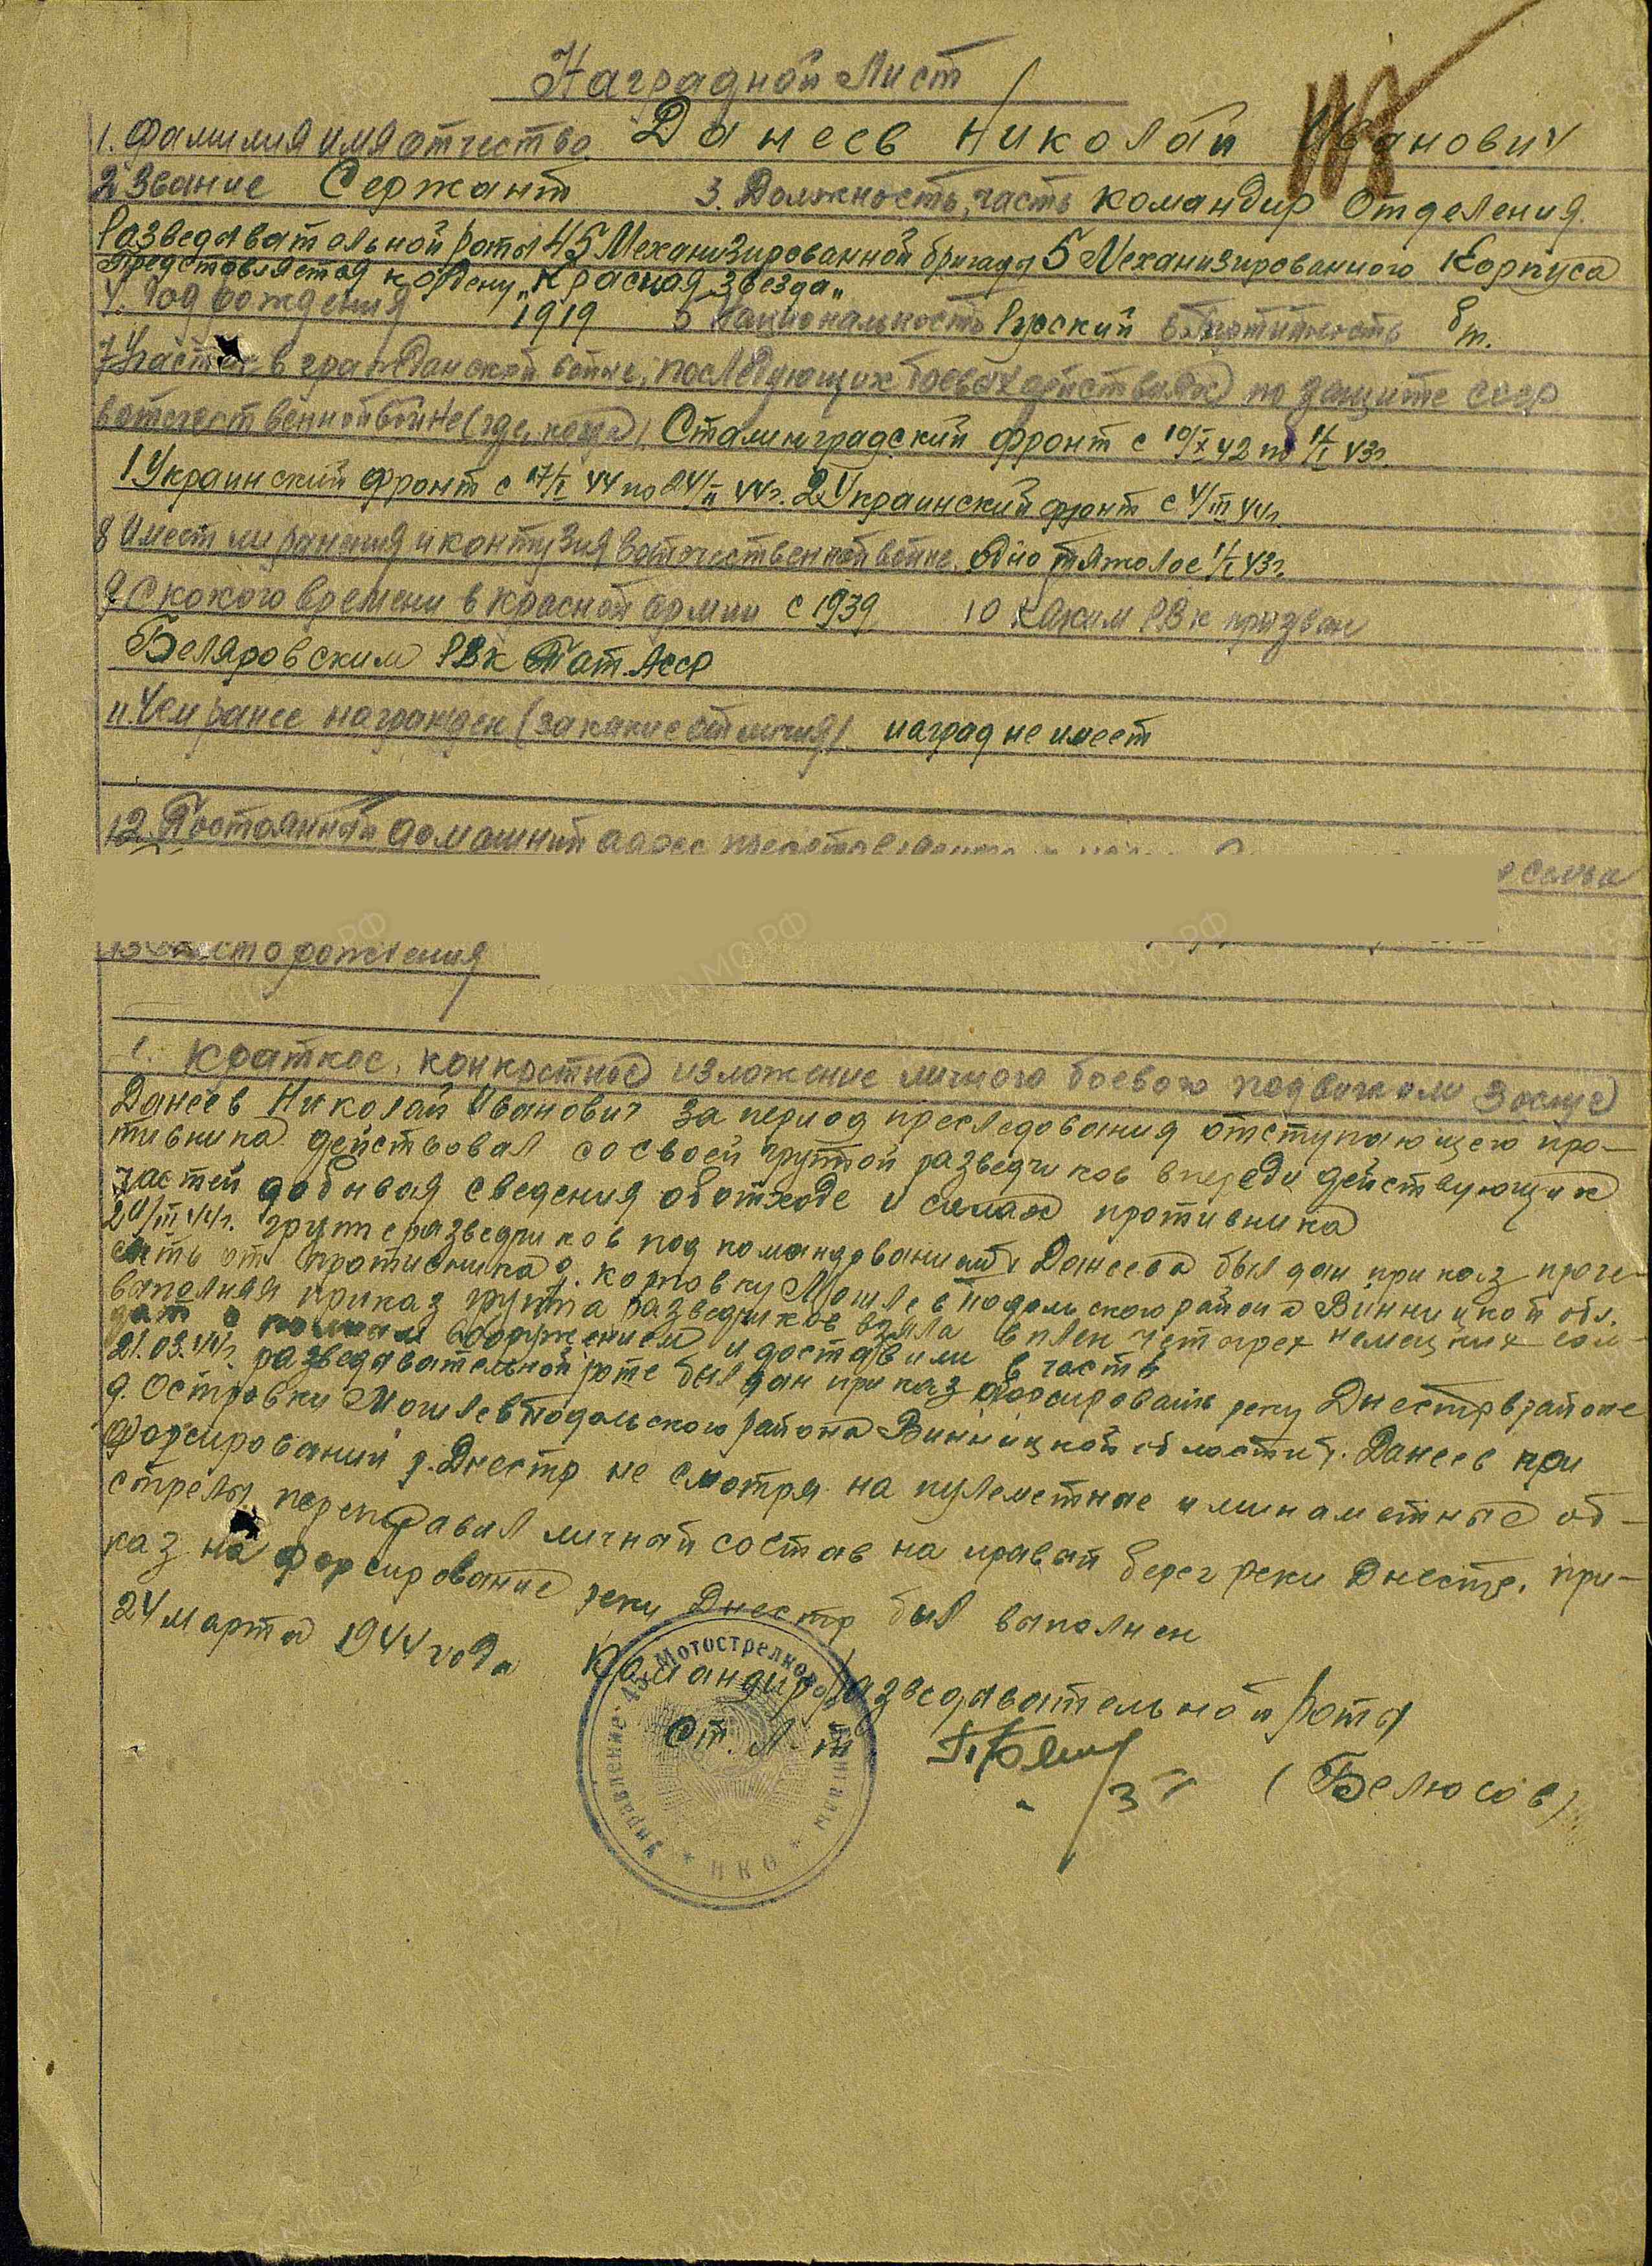 Наградной Лист
1. Фамилия имя отчество. Данеев Николай Иванович
2 Звание Сержант 3. Должность, часть командир Отделения.
Разведавательной роты 45 Механизированной бригады 5 Механизированного Корпуса
представляется к ордену „Красная звезда"
4. Год рождения 1919 5 Национальность Русский 6 Партийность б/п.
7 Участие в гражданской войне, последующих боевых действиях по защите СССР
в отечественной войне (где, когда). Сталинградский фронт с 10/X 42 по 1/I 43г.
1 Украинский фронт с 17/I 44 по 24/II 44г. 2 Украинский фронт с 4/III 44г.
8 Имеет ли ранения и контузия в отечественной войне. одно тяжолое 1/I 43г.
9 С какого времени в красной армии с 1939 10 Каким РВК призван
Беляровским РВК Тат. АССР
11. Чем ранее награжден (за какие отличия). наград не имеет
12. Постоянный домашний адрес семья
13 Место рождения
1. Краткое, конкретное изложение личного боевого подвига или заслуг
Данеев Николай Иванович за период преследования отступающего про-
тивника действовал со своей группой разведчиков впереди действующих
частей добывая сведения об отходе и силах противника
20/III 44г. группе разведчиков под командованием т. Данеева был дан приказ проче-
сать от противника д. Могилев Подольского района Винницкой обл.
выполняя приказ группа разведчиков взяла в плен четырех немецких сол-
дат с полным вооружением и доставили в часть
21.03.44г. разведавательной роте был дан приказ форсировать реку Днестр в районе
д. Островки Могилев Подольского района Винницкой области т. Данеев при
форсировании р. Днестр не смотря на пулеметные и минаметные об-
стрелы переправил личный состав на правый берег реки Днестр. при-
каз на форсирование реки Днестр был выполнен
24 марта 1944 года
Командир разведавательной роты
Ст. Л-т (Белюсов)
Управление 45 Мотострелковой бригады
* НКО *